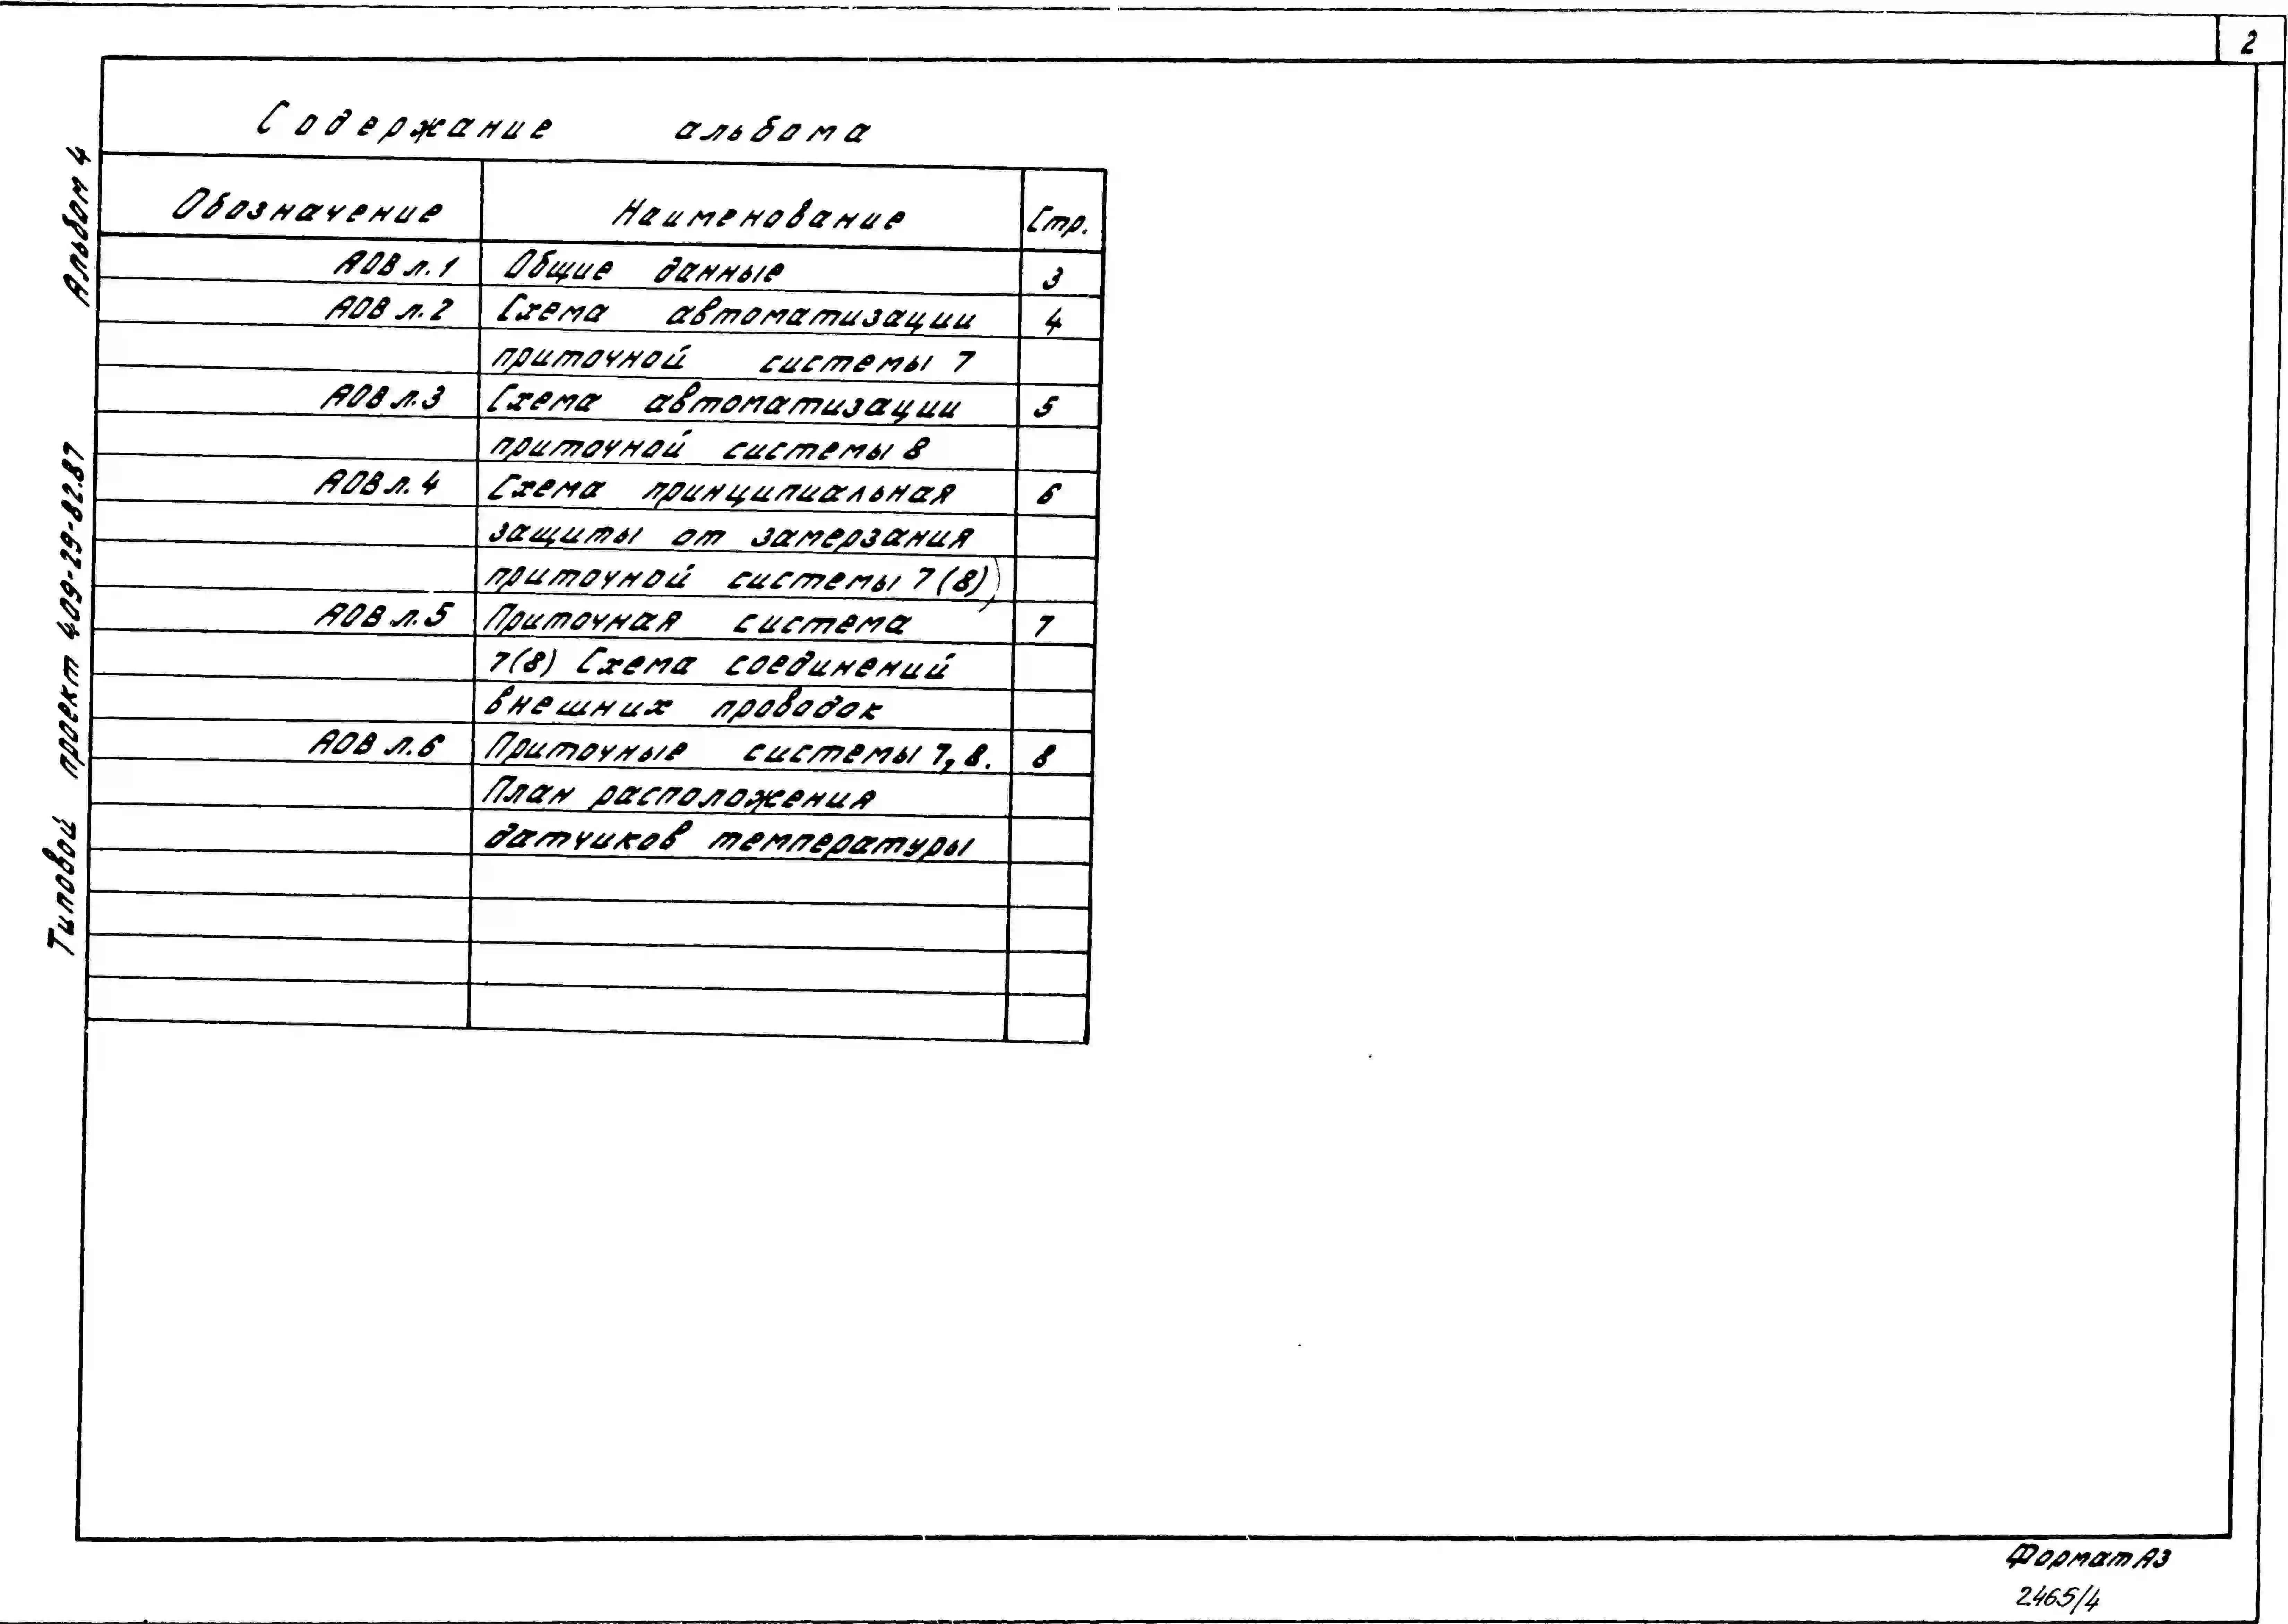 2
Содержание альбома
Обозначение Наименование Стр.
АОВ л.1 Общие данные 3
АОВ л.2 Схема автоматизации 4
приточной системы 7
АОВ л.3 Схема автоматизации 5
приточной системы 8
АОВ л.4 Схема принципиальная 6
защиты от замерзания
приточной системы 7(8)
АОВ л.5 Приточная система 7
7(8) Схема соединений
внешних проводок
АОВ л.6 Приточные системы 7,8. 8
План расположения
датчиков температуры
Типовой проект 409-29-82.87 Альбом 4
Формат А3
2465/4